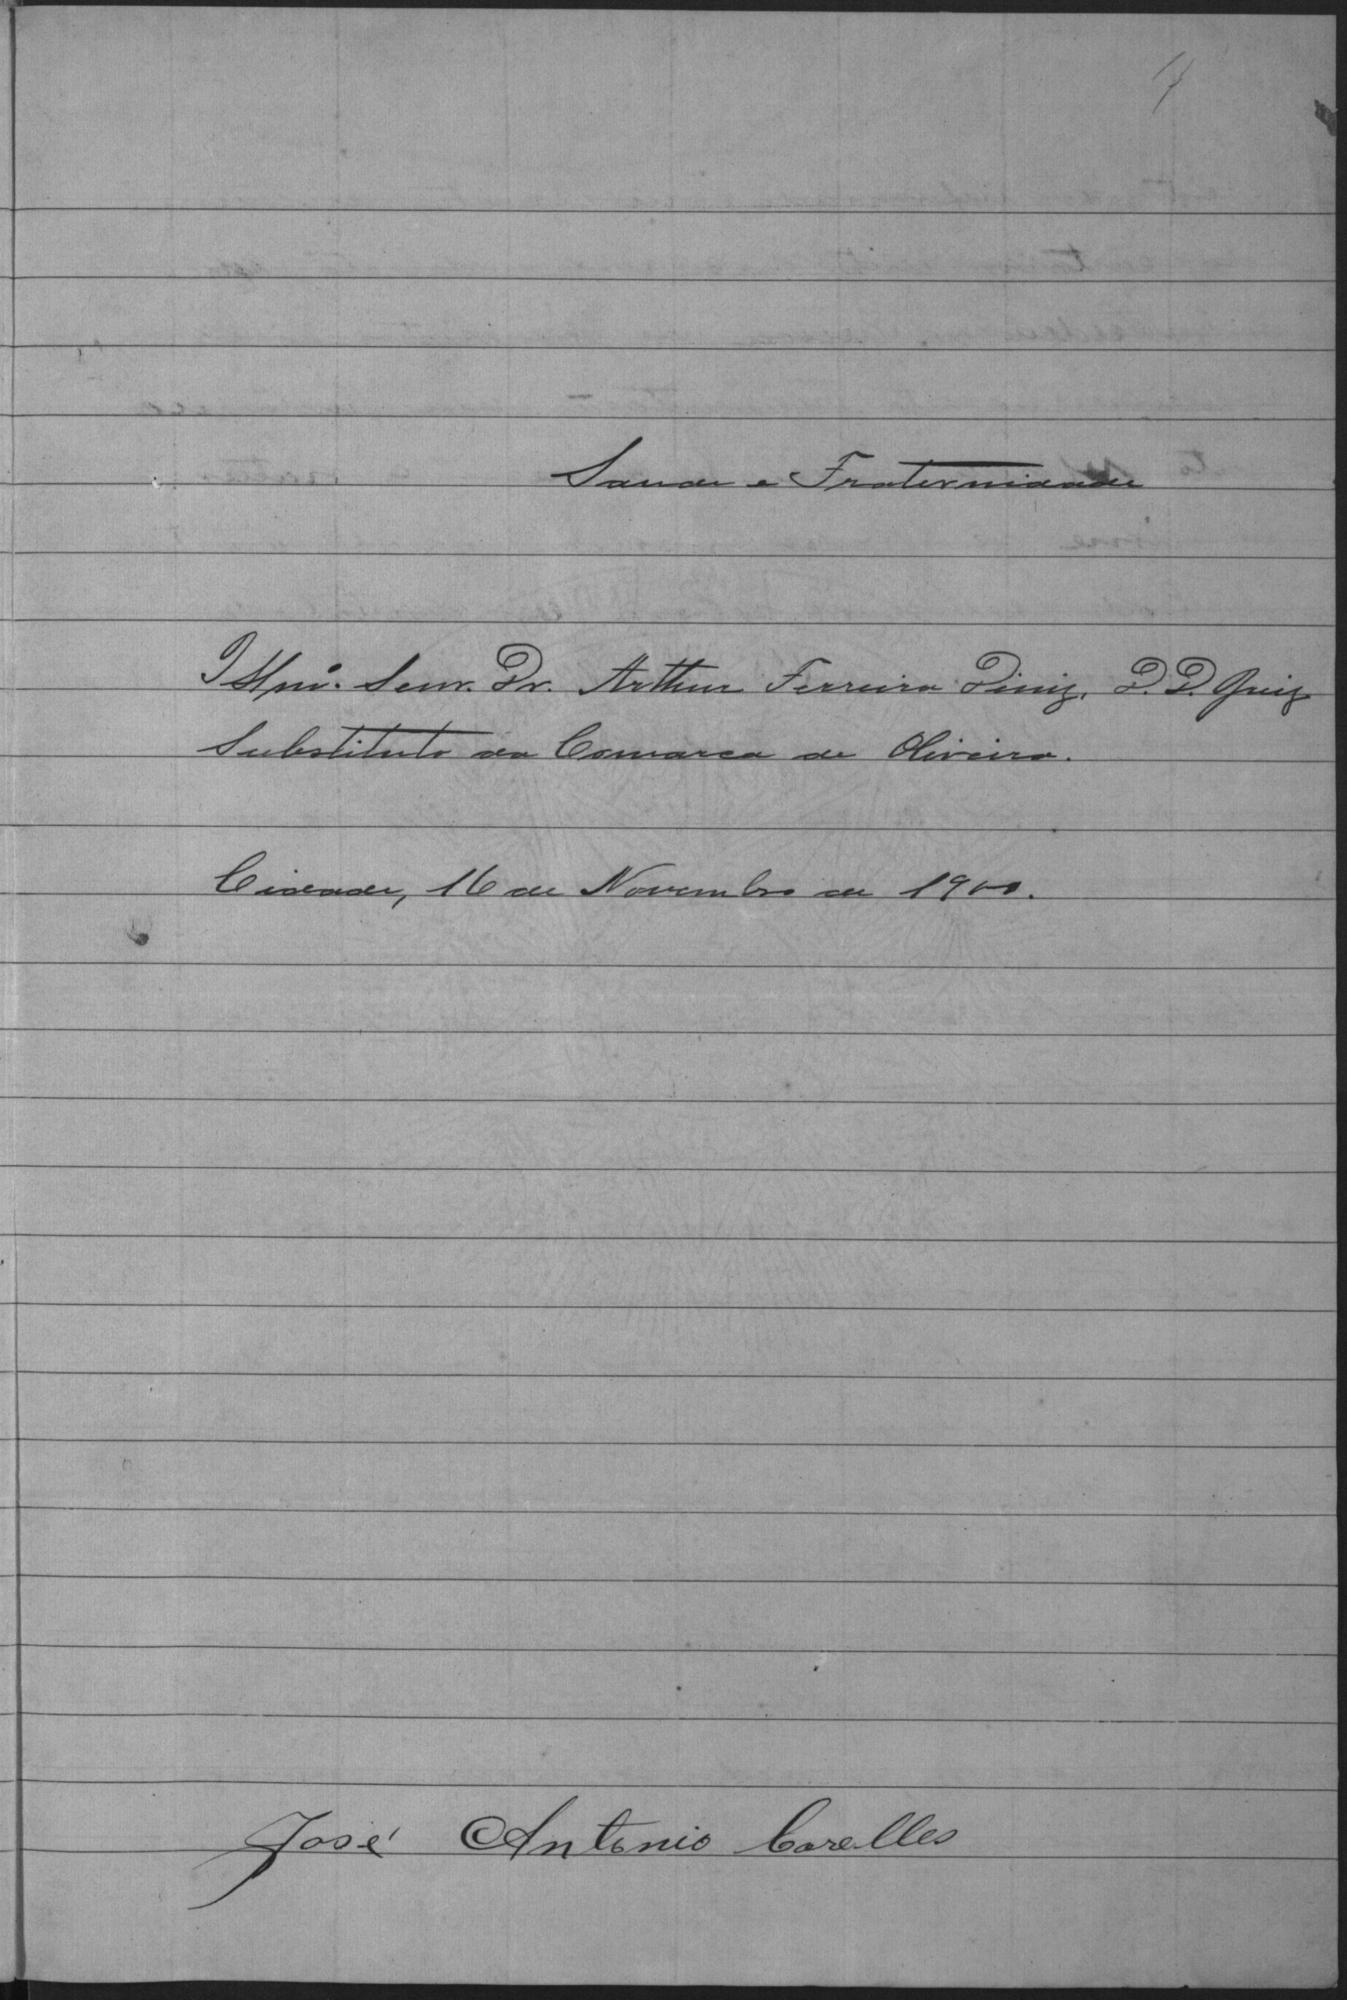 Saude e Fraternidade
Illmo. Senr. Dr. Arthur Ferreira Diniz, D. D. Juiz
Substituto da Comarca de Oliveira.
Cidade, 16 de Novembro de 1900.
José Antonio